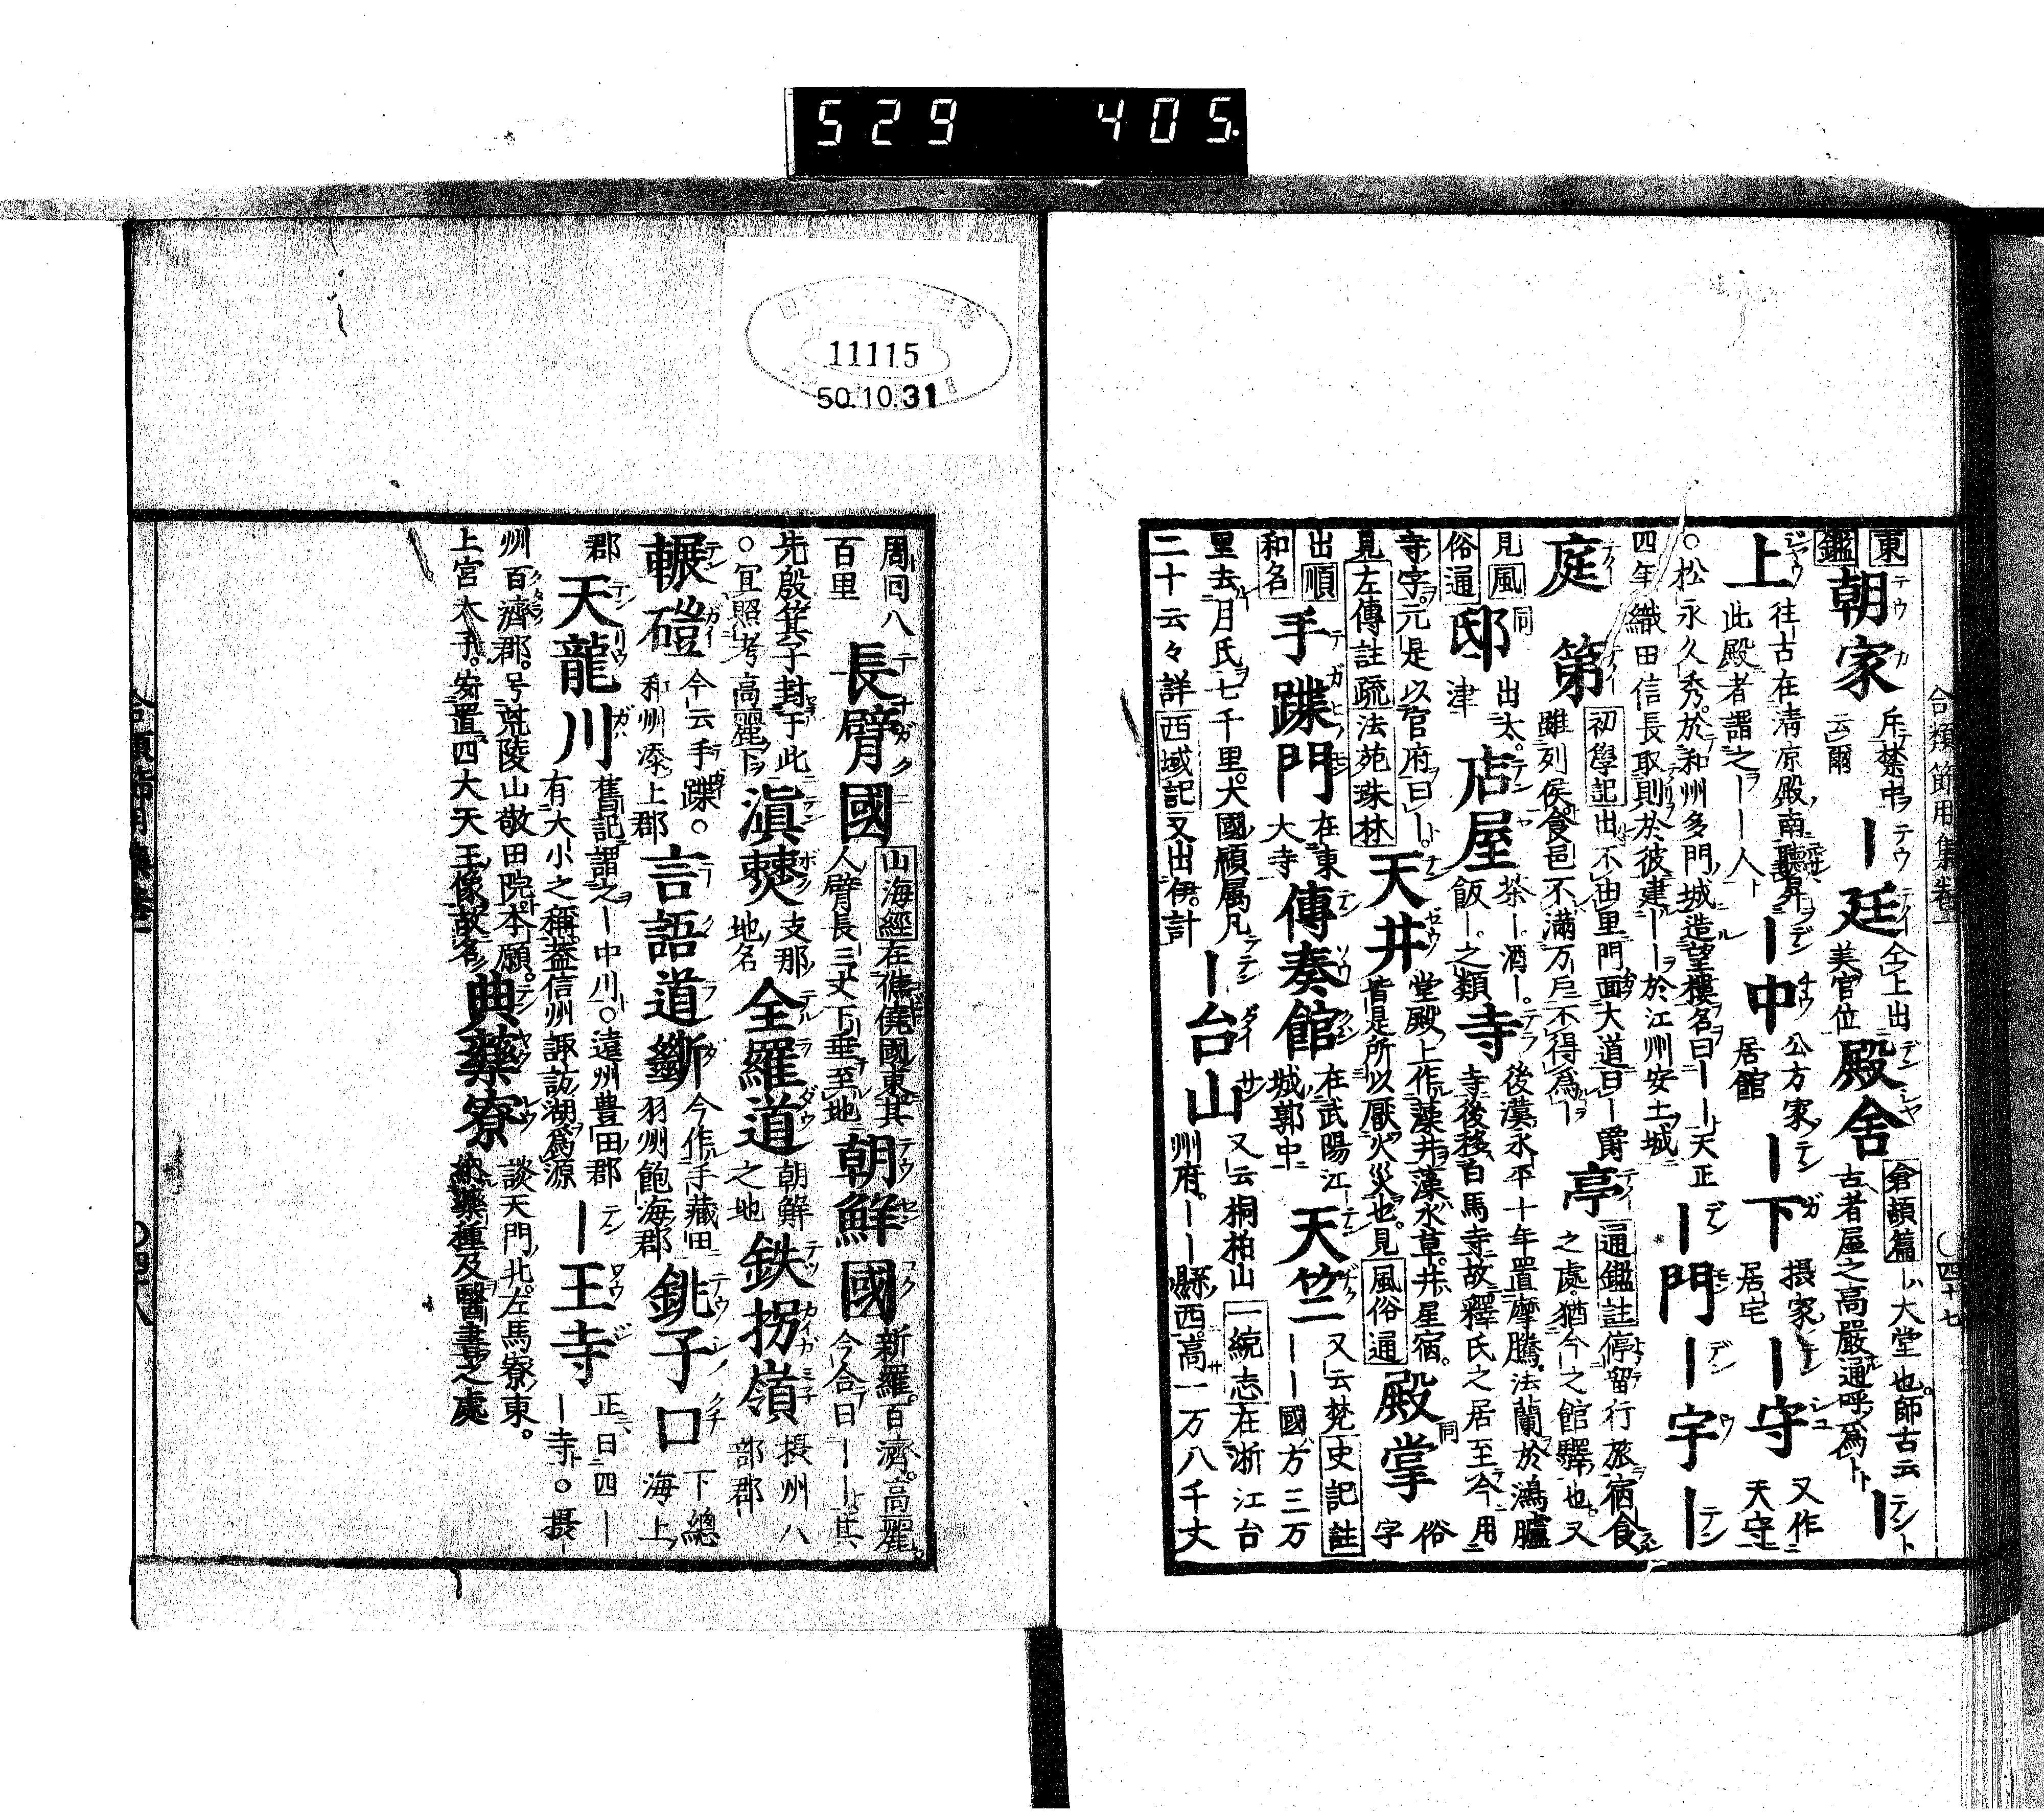 529 405.
11115
50.10.31
合類節用集卷一
〇四十七
東鑑
朝家 斥禁中云爾
｜廷 仝上出美官位
殿舍 倉頡篇｜ハ大堂也師古云古者屋之高嚴通呼爲｜
｜上 往古在清凉殿南聽昇此殿者謂之｜｜人
｜中 公方家居館
｜下 摂家居宅
｜守 又作天守
〇松永久秀於和州多門城造望樓名曰｜｜天正四年織田信長取則於彼建｜｜於江州安土城
｜門
｜宇
｜庭
第 初學記出不由里門面大道曰｜爵雖列侯食邑不滿万戸不得爲｜
亭 通鑑註停留行旅宿食之處猶今之館驛也又見風俗通
邸 同 出太津
店屋 茶｜酒｜飯｜之類
寺 後漢永平十年置摩騰法蘭於鴻臚寺後移白馬寺故釋氏之居至今用寺字元是以官府曰｜見左傳註疏法苑珠林
天井 堂殿上作藻井藻水草井星宿皆是所以厭火災也見風俗通
殿掌 同 俗字出順和名
手蹀門 在東大寺
傳奏館 在武陽江城郭中
天竺 又云梵史記註｜｜國方三万里去月氏七千里大國傾属凡二十云々詳西域記又出伊計
｜台山 又云桐柏山一統志在浙江台州府｜｜縣西高一万八千丈
周回八百里
長臂國 山海經在僬僥國東其人臂長三丈下垂至地
朝鮮國 新羅百濟高麗今合曰｜｜其先殷箕子封于此〇宜照考高麗下
滇僰 支那地名
全羅道 朝鮮之地
鉄拐嶺 摂州八部郡
輾磑 今云手蹀和州添上郡
言語道斷 今作手藏田羽州飽海郡
銚子口 下總海上郡
天龍川 舊記謂之｜中川〇遠州豊田郡有大小之稱蓋信州諏訪湖爲源
｜王寺 正曰四｜｜寺〇摂州百濟郡号荒陵山敬田院本願上宮太子安置四大天王像故名
典藥寮 談天門北左馬寮東納藥種及醫書之處